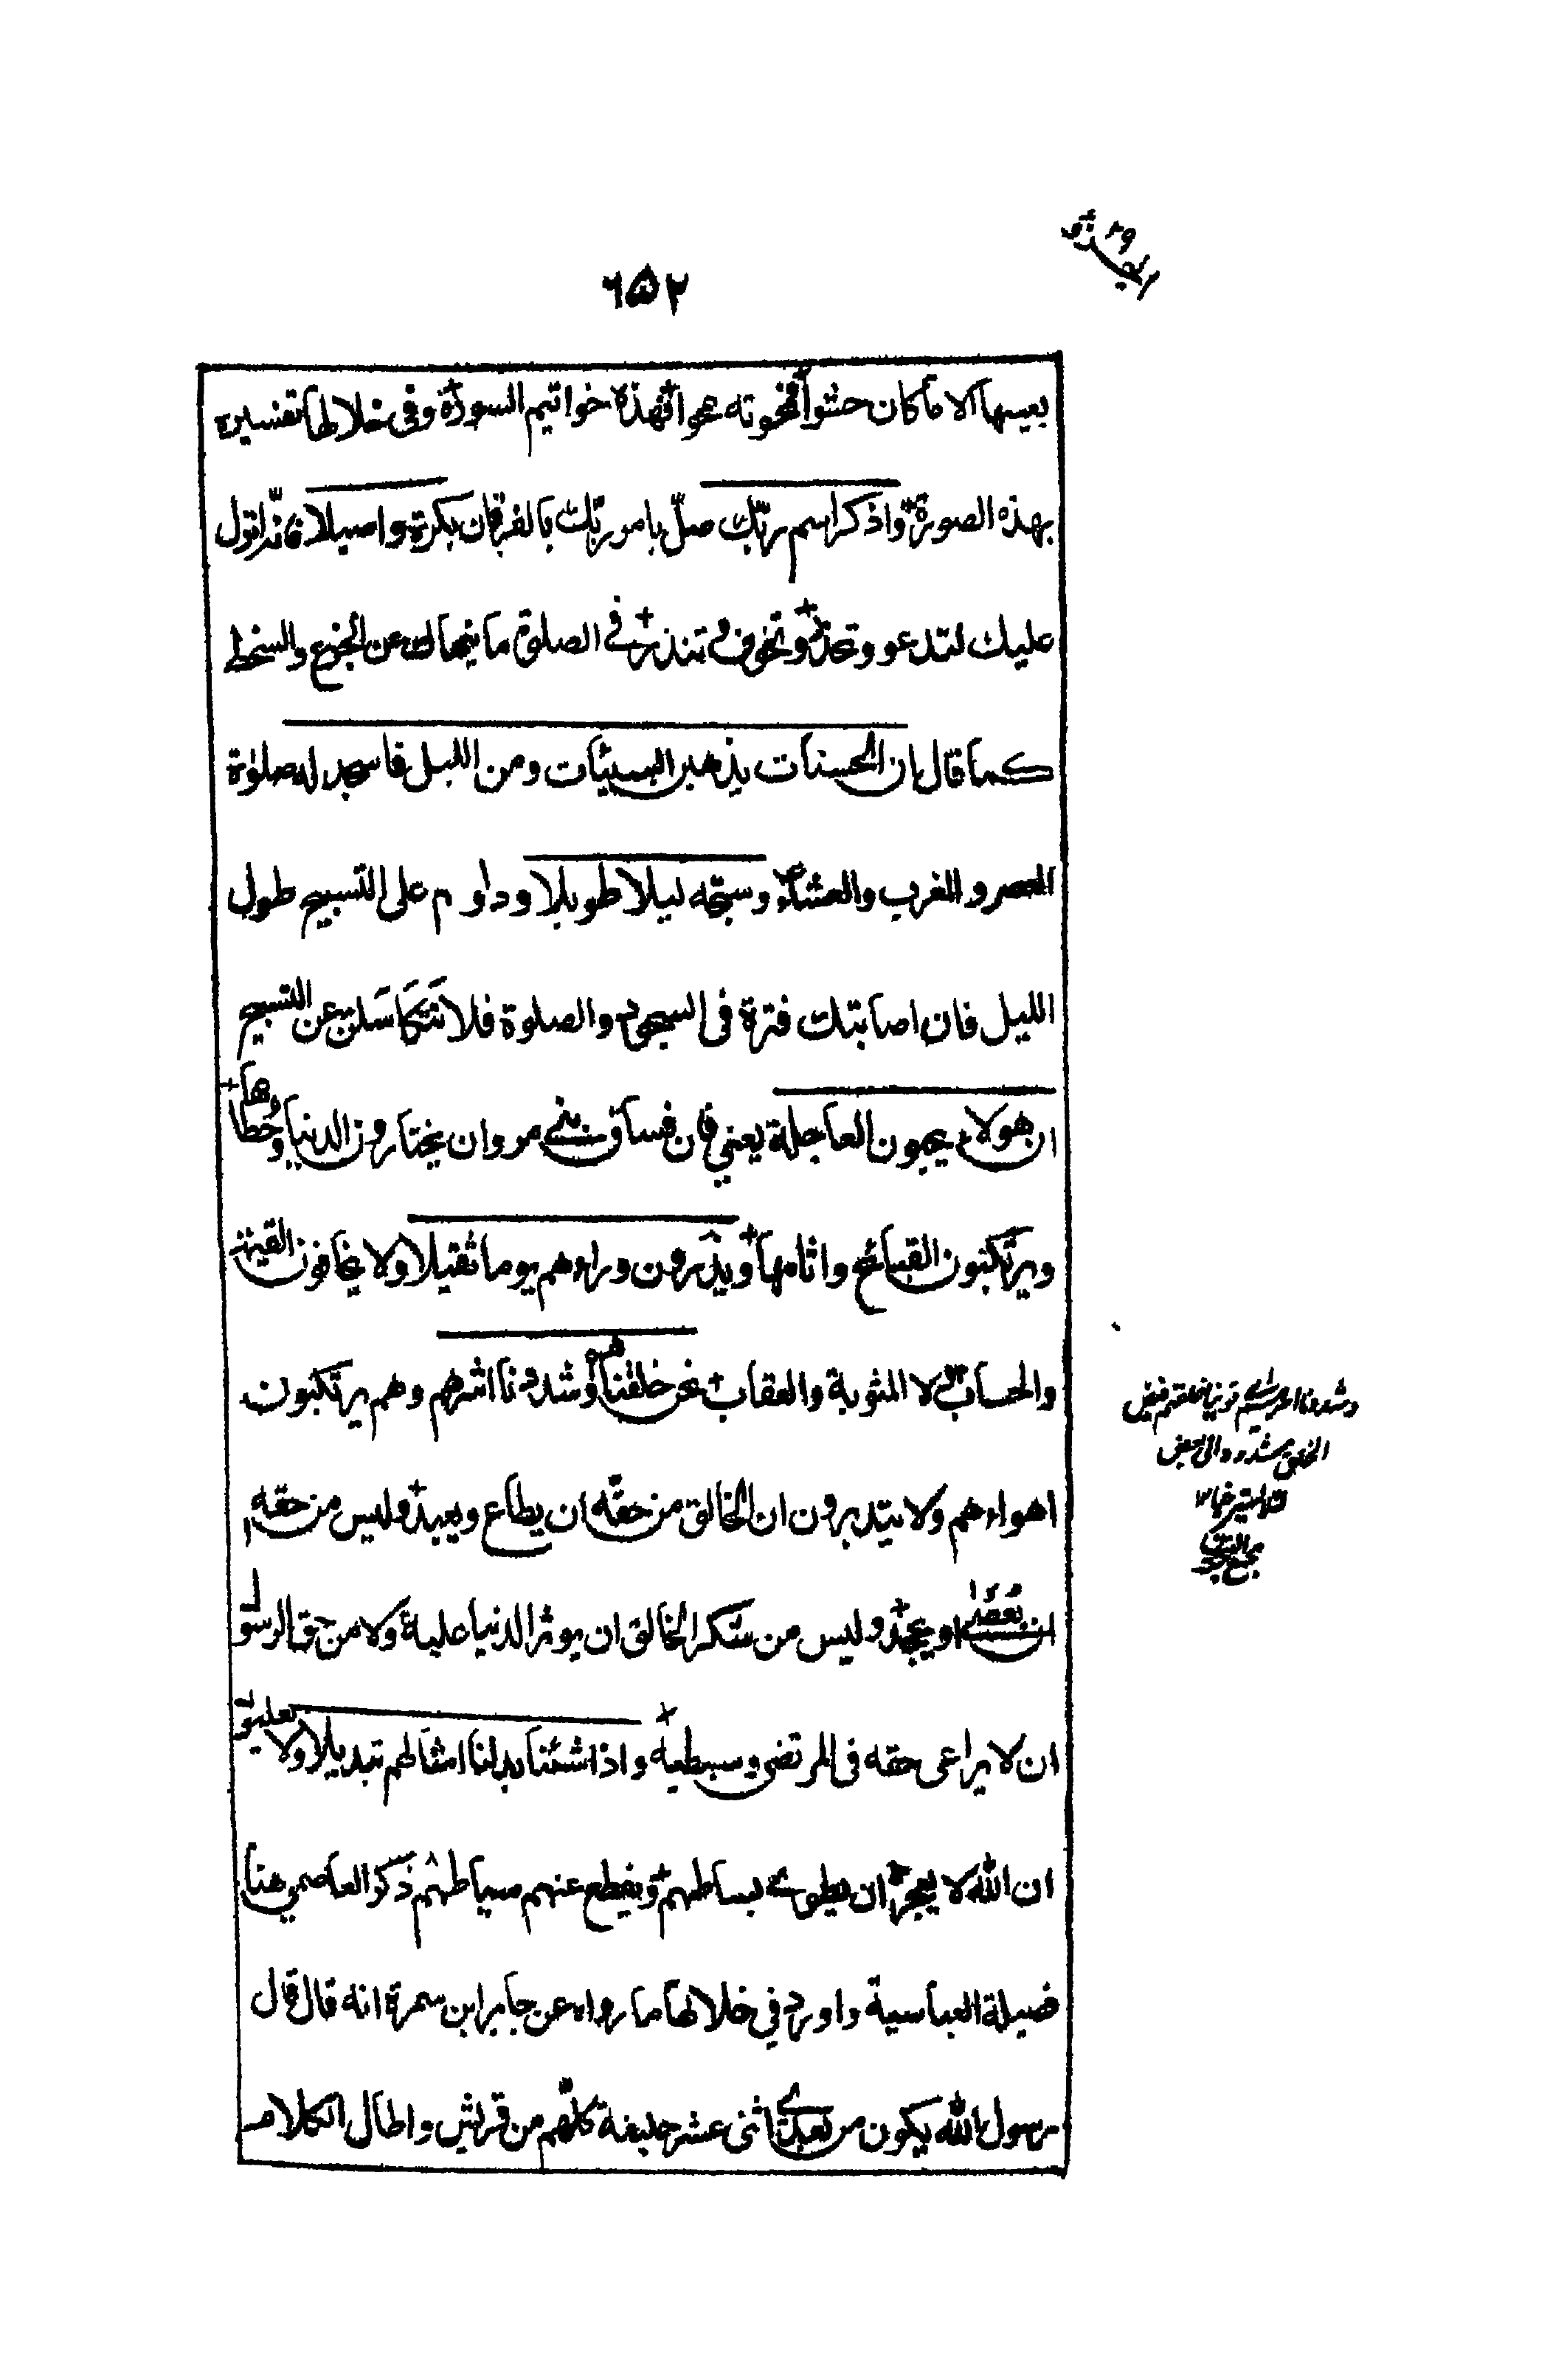 ٦٥٢
بعينها الا ما كان حشوا فمحوته محوا فهذه خواتيم السورة وفى خلالها تفسيره
بهذه الصورة واذكر اسم ربّك صلّ بامر ربّك بالفرقان بكرة واصيلا فانّه انزل
عليك لتدعو وتحذّر وتخوف وتنذر فى الصلوة ما ينهاك عن الجزع والسخط
كما قال ان الحسنات يذهبن السيئات ومن الليل فاسجد له صلوة
العصر والمغرب والعشاء وسبّحه ليلا طويلا وداوم على التسبيح طول
الليل فان اصابتك فترة فى السجود والصلوة فلا تتكاسلن عن التسبيح
ان هولاء يحبون العاجلة يعني فان فساق بنى مروان يختارون الدنيا وحُطامها
ويرتكبون القبائح واثامها ويذرون وراءهم يوما ثقيلا ولا يخافون القيمة
والحساب ولا المثوبة والعقاب نحن خلقناهم وشددنا اسرهم وهم يرتكبون
اهواءهم ولا يتدبرون ان الخالق من حقّه ان يطاع ويعبد وليس من حقه
ان يعصى او يجحد وليس من شكر الخالق ان يوثر الدنيا عليه ولا من حق الرسول
ان لا يراعى حقه فى المرتضى وسبطيه واذا شئنا بدلنا امثالهم تبديلا ولا
ان الله لا يعجز ان يطوى بساطهم ويقطع عنهم سياطهم ذكر العاصمي هنا
فضيلة العباسية واورد في خلالها ما رواه عن جابر ابن سمرة انه قال قال
رسول الله يكون من بعدى اثنى عشر خليفة كلّهم من قريش واطال الكلام